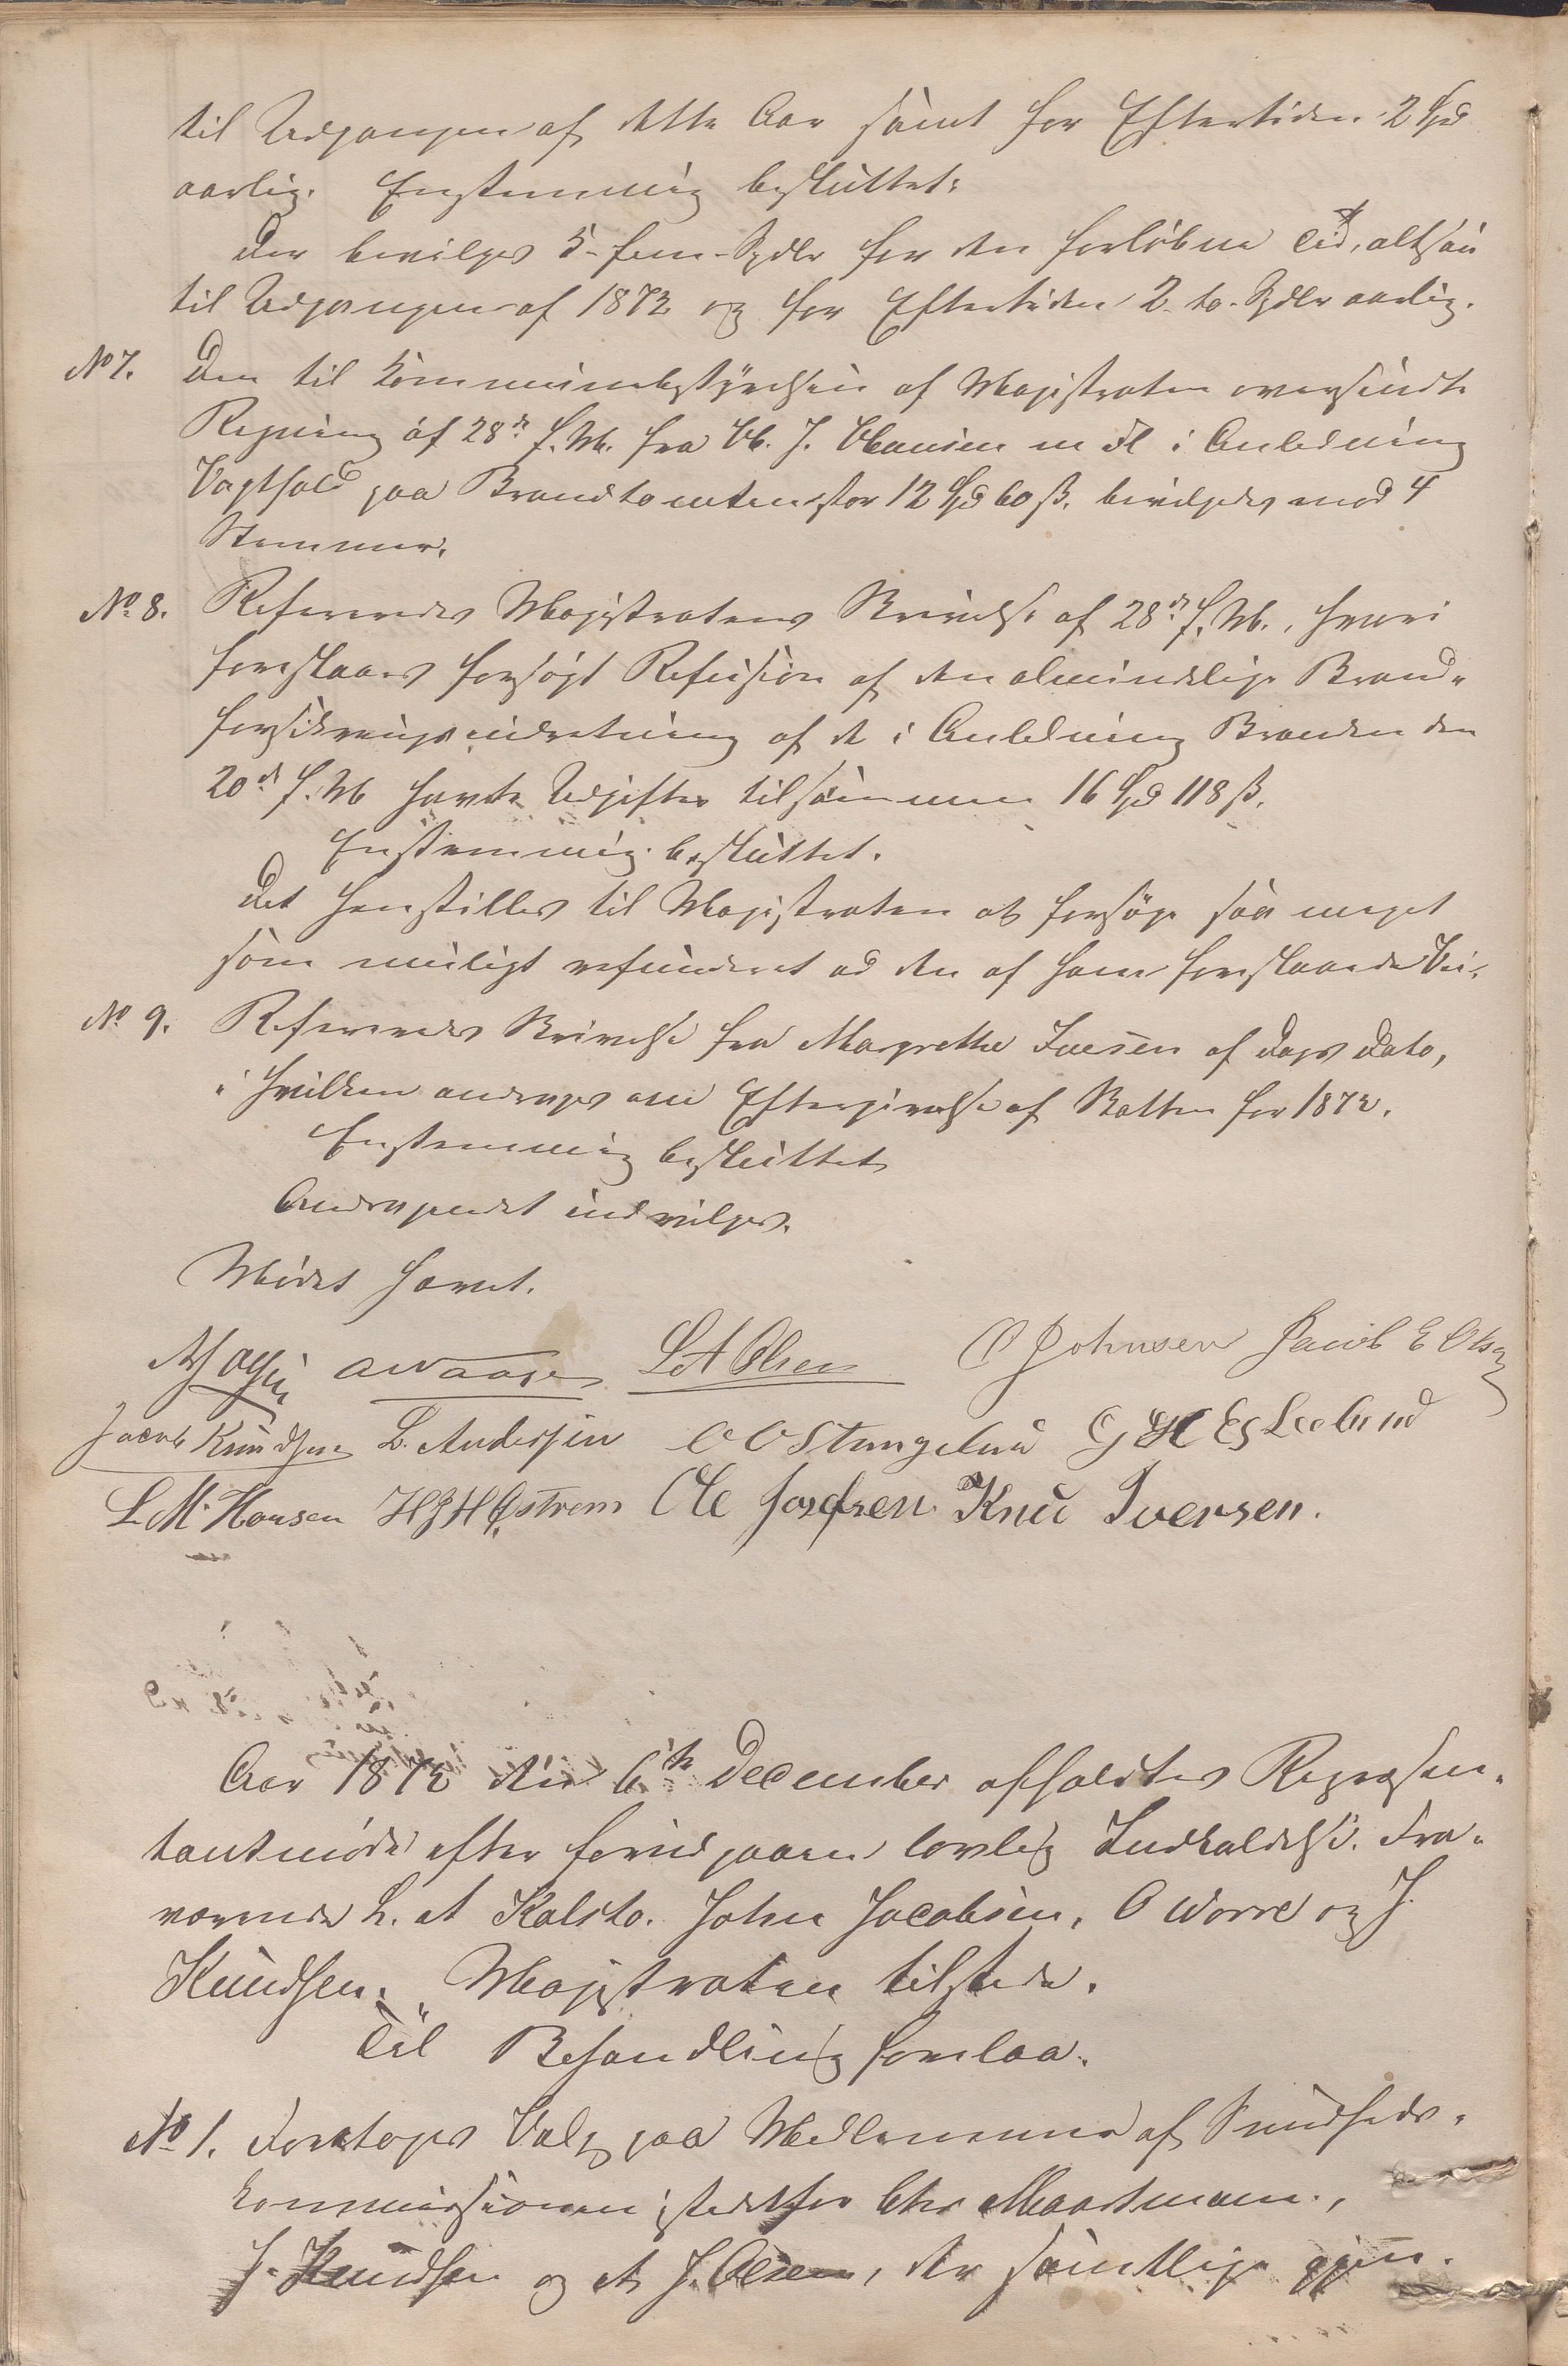 til Udgangen af dette Aar samt for Eftertiden 2 Spd
aarlig. Enstemmig besluttet:
Der bevilges 5-fem-Spdlr for den forløbne Tid, altsaa
til Udgangen af 1872 og for Eftertiden 2-to-Spdlr aarlig.
No 7. Den til Kommunebestyrelsen af Magistraten oversendte
Regning af 28de f. M. fra M. J. Hansen m fl i Anledning
Vagthold paa Brandtomten stor 12 Spd 60 ß. bevilgedes mod 4
Stemmer.
No 8. Refereredes Magistratens Skrivelse af 28de f. M., hvori
foreslaaes forsøgt Refusion af den almindelige Brand-
forsikringsindretning af de i Anledning Branden den
20de f. M havte Udgifter tilsammen 16 Spd 118 ß.
Enstemmig besluttet.
Det henstilles til Magistraten at forsøge saa meget
som muligt refunderet ad den af ham foreslaaede Vei.
No 9. Refereredes Skrivelse fra Margrethe Ivesen af Dags Dato,
i hvilken andrages om Eftergivelse af Skatten for 1872.
Enstemmig besluttet
Andragendet indvilges.
Mødet hævet.
A Waage L A Olsen O Johnsen Jacob E Olsen
Jacob Knudsen L. Andersen O O Stangeland G H Eskeland
L. M. Hansen H J H Østrem Ole Josefsen Knud Iversen.
Aar 1872 den 6te December afholdtes Repræsen-
tantmøde efter forudgaaen lovlig Indkaldelse. Fra-
værende L. A Kalsto. John Jacobsen, O Worre og J.
Knudsen. Magistraten tilstede.
Til Behandling forelaa.
No 1. Foretoges Valg paa Medlemmer af Sundheds-
kommissionen istedetfor Chr Maartmann,
J. Knudsen og A J. Olsen, der samtlige gjen-